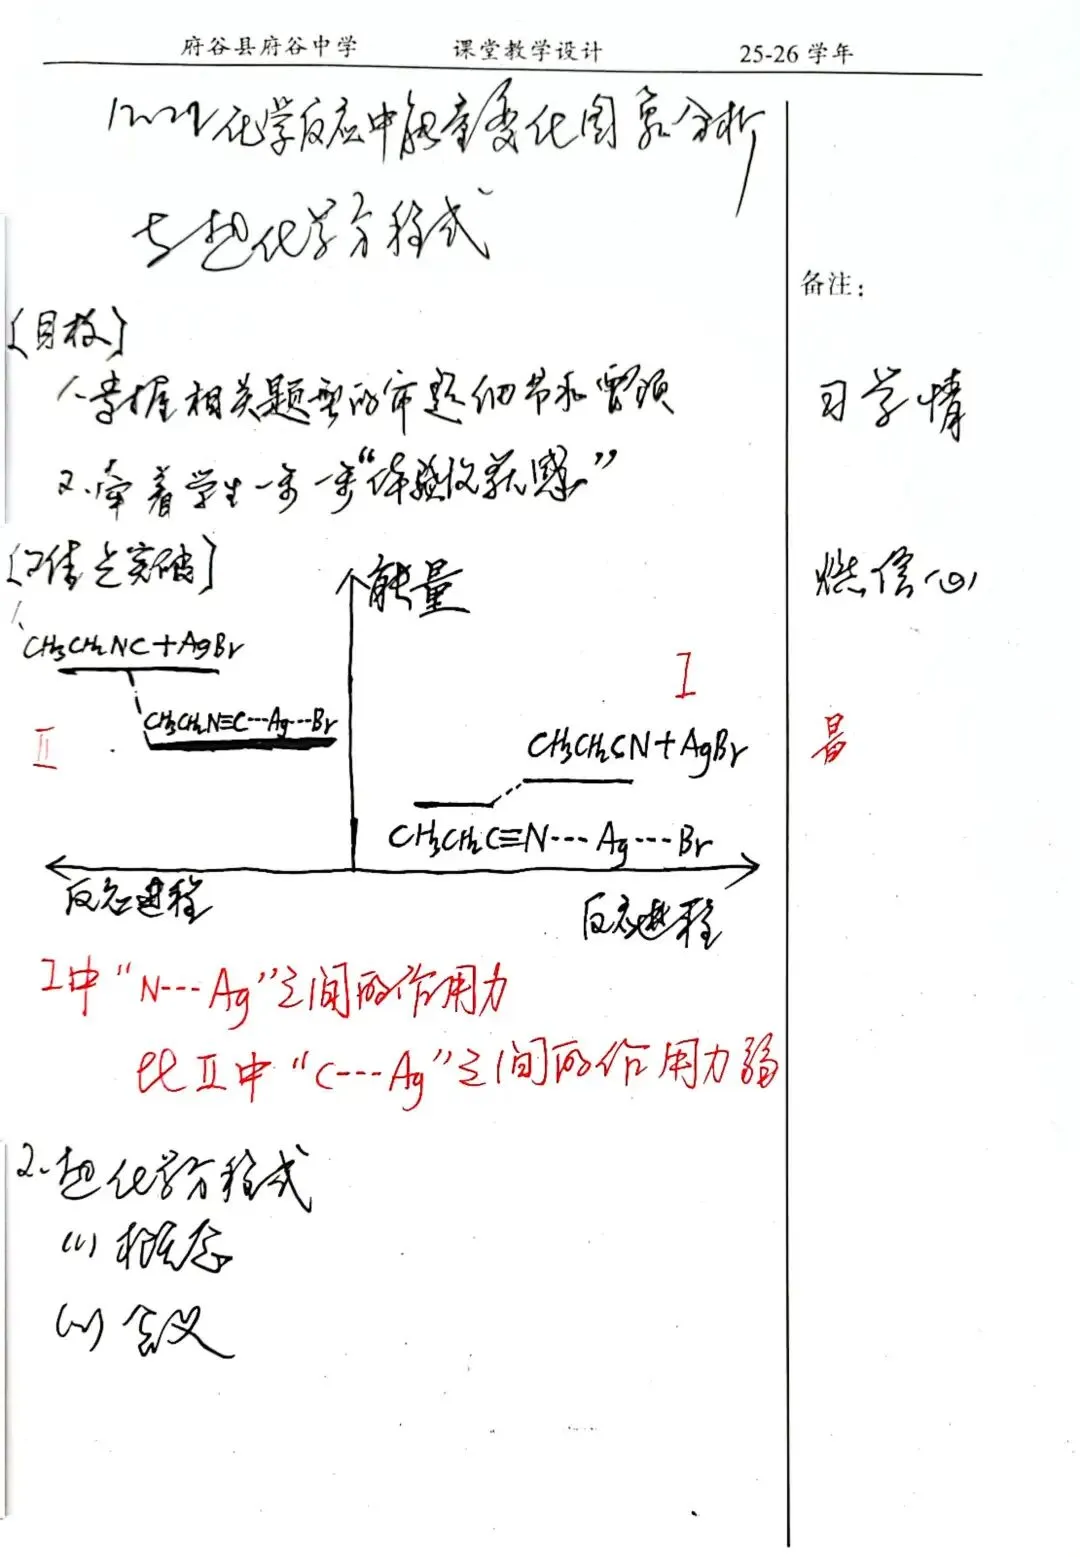 府谷县府谷中学 课堂教学设计 25-26 学年
化学反应中能量变化图象分析
与热化学方程式
备注:
[目标]
1.掌握相关题型的审题细节和要领
习学情
2.牵着学生一步一步“体验收获感”
燃信心
能量
CH3CH2NC+AgBr
I
CH3CH2N≡C---Ag---Br
II
CH3CH2CN+AgBr
CH3CH2C≡N---Ag---Br
反应进程
反应进程
I中“N---Ag”之间的作用力
比II中“C---Ag”之间的作用力弱
2.热化学方程式
(1)概念
(2)含义